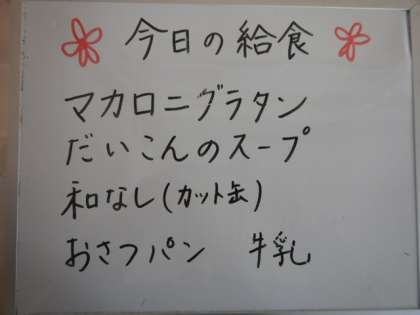 今日の給食
マカロニグラタン
だいこんのスープ
和なし(カット缶)
おさつパン 牛乳